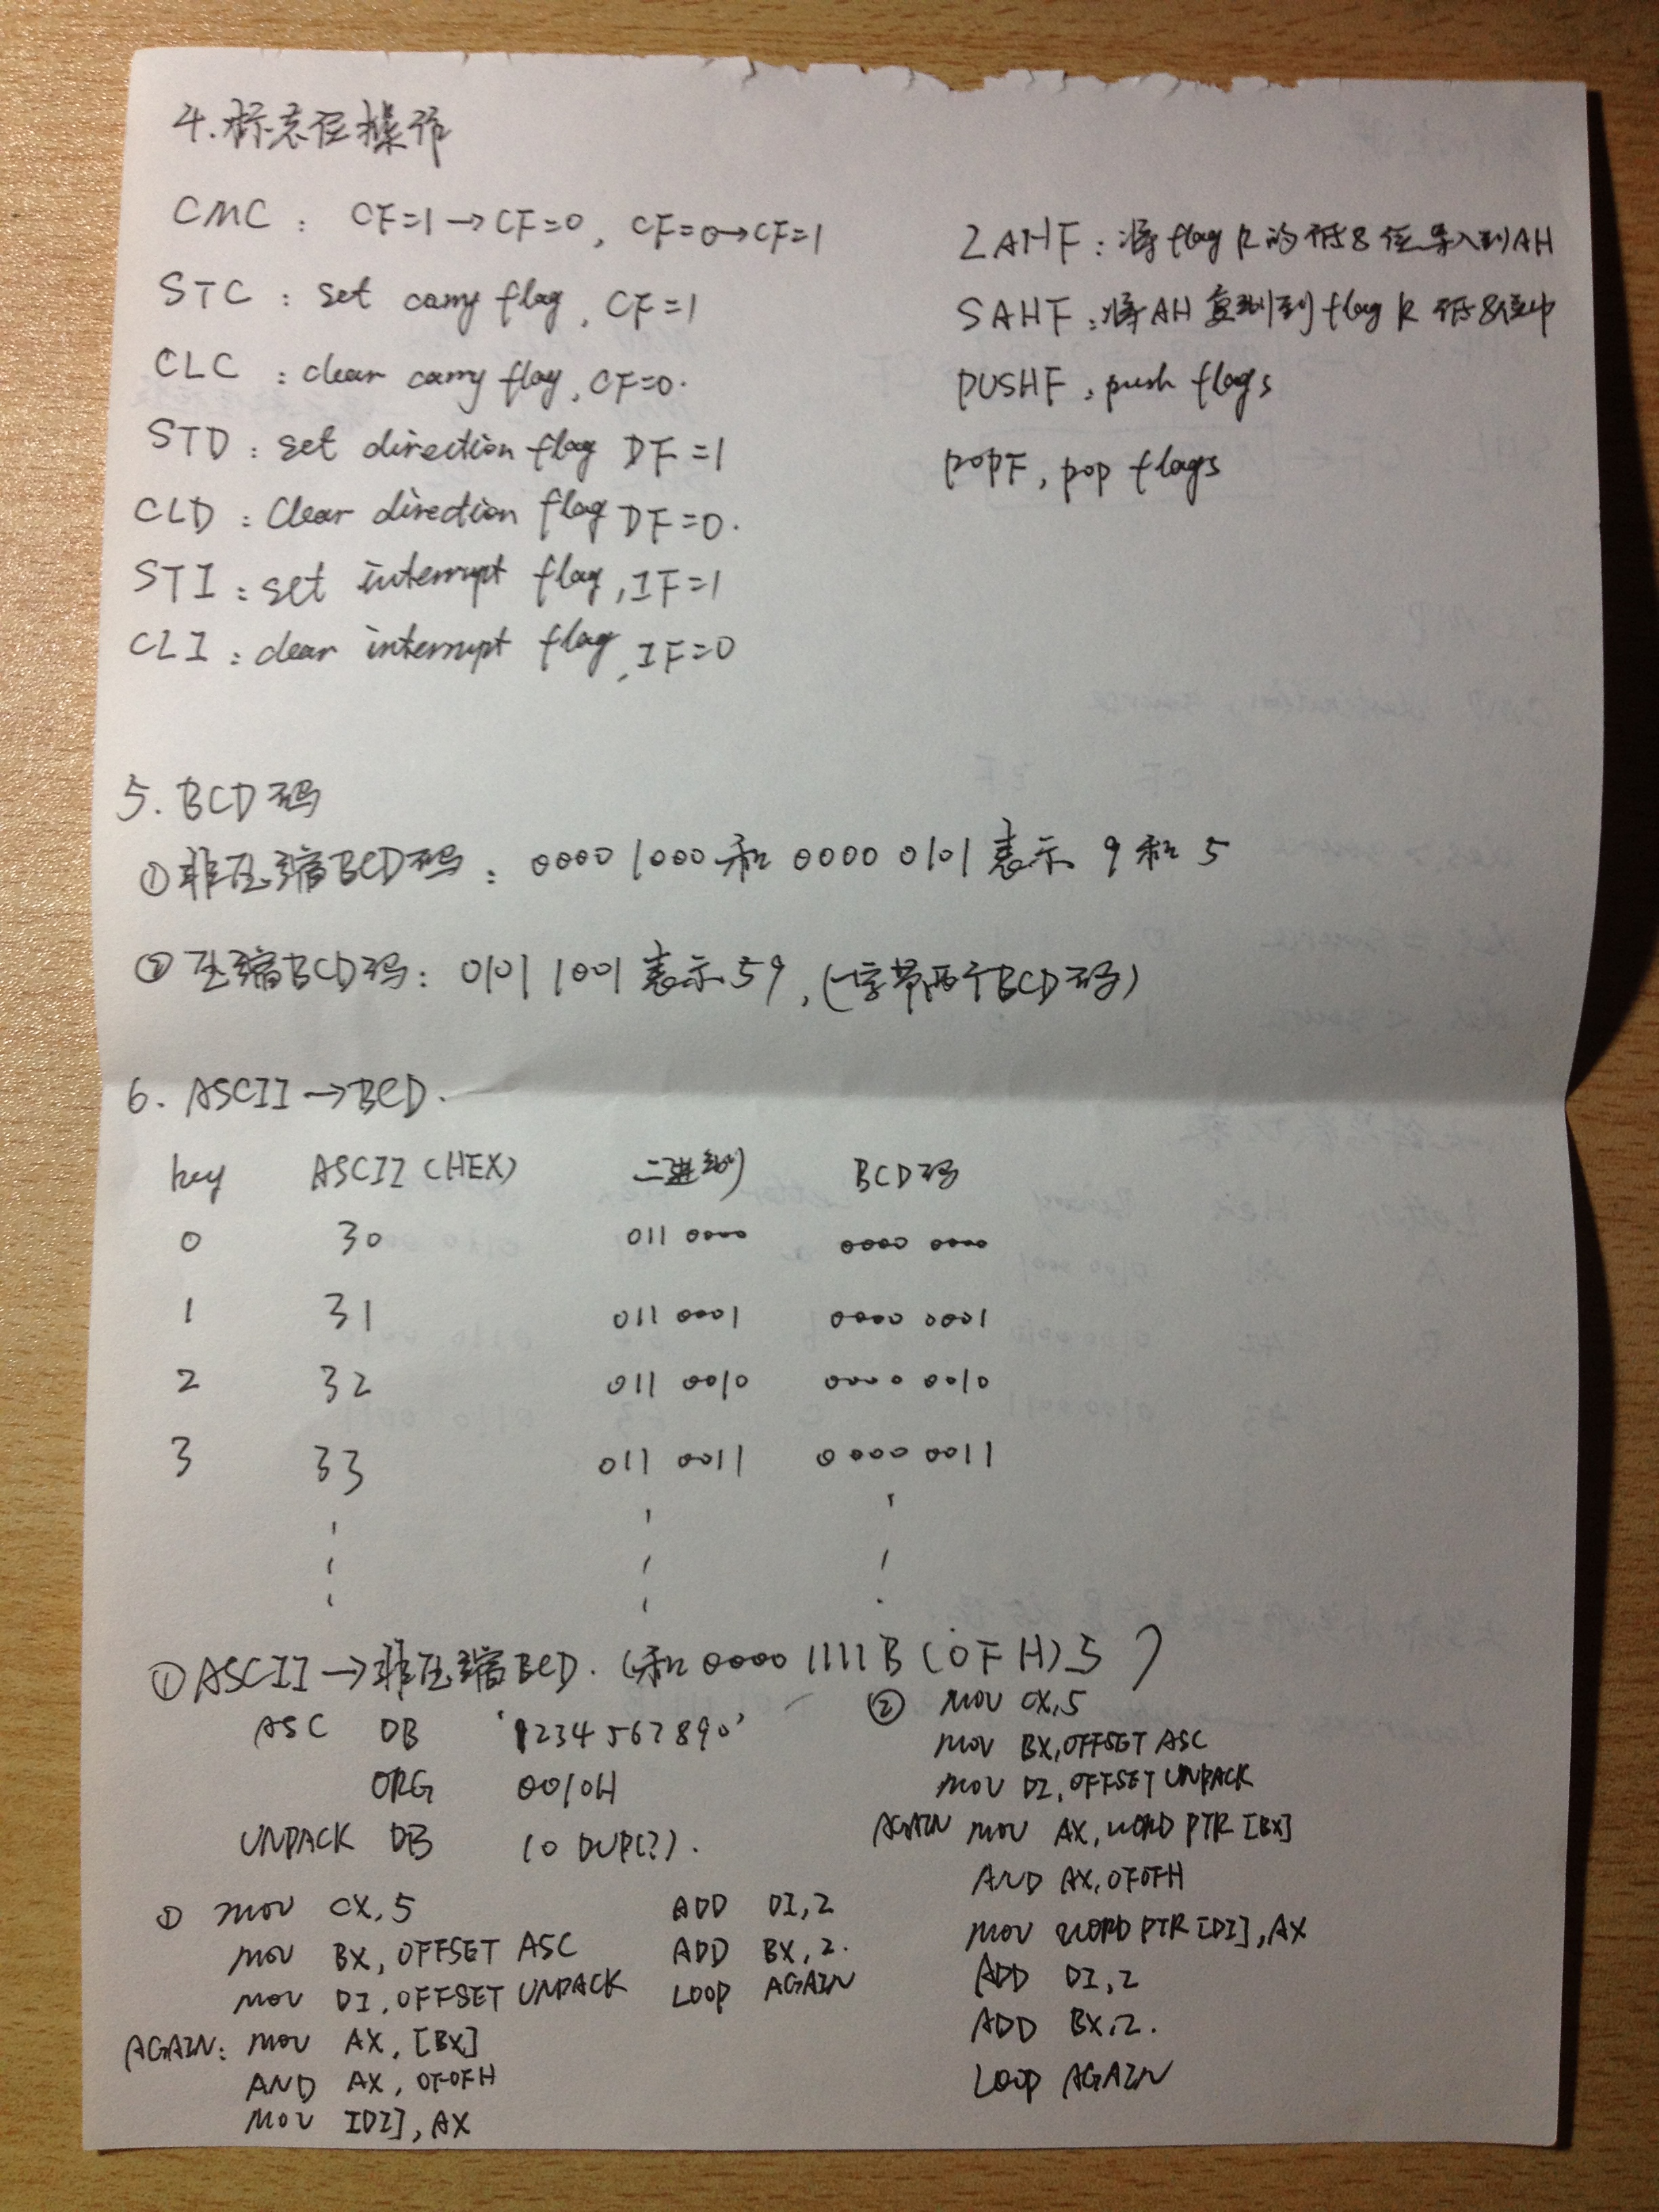 4. 标志位操作
CMC : CF=1→CF=0, CF=0→CF=1
STC : set carry flag, CF=1
CLC : clear carry flag, CF=0.
STD : set direction flag DF=1
CLD : Clear direction flag DF=0.
STI : set interrupt flag, IF=1
CLI : clear interrupt flag, IF=0
LAHF : 将flag R的低8位导入到AH
SAHF : 将AH复制到flag R低8位中
PUSHF, push flags
POPF, pop flags
5. BCD码
①非压缩BCD码 : 0000 1000 和 0000 0101 表示 9 和 5
②压缩BCD码 : 0101 1001 表示 59, (一字节两个BCD码)
6. ASCII→BCD.
key ASCII (HEX) 二进制 BCD码
0 30 011 0000 0000 0000
1 31 011 0001 0000 0001
2 32 011 0010 0000 0010
3 33 011 0011 0000 0011
①ASCII→非压缩BCD. (和0000 1111B (0FH)与)
ASC DB '1234567890'
ORG 0010H
UNPACK DB 10 DUP(?).
① MOV CX, 5
MOV BX, OFFSET ASC
MOV DI, OFFSET UNPACK
AGAIN: MOV AX, [BX]
AND AX, 0F0FH
MOV [DI], AX
ADD DI, 2
ADD BX, 2.
LOOP AGAIN
② MOV CX, 5
MOV BX, OFFSET ASC
MOV DI, OFFSET UNPACK
AGAIN MOV AX, WORD PTR [BX]
AND AX, 0F0FH
MOV WORD PTR [DI], AX
ADD DI, 2
ADD BX, 2.
LOOP AGAIN